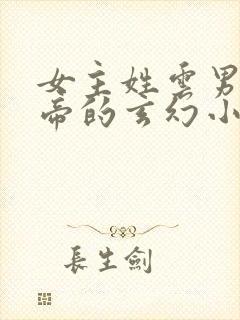 女主姓雲男
帝的玄幻小
長生劍